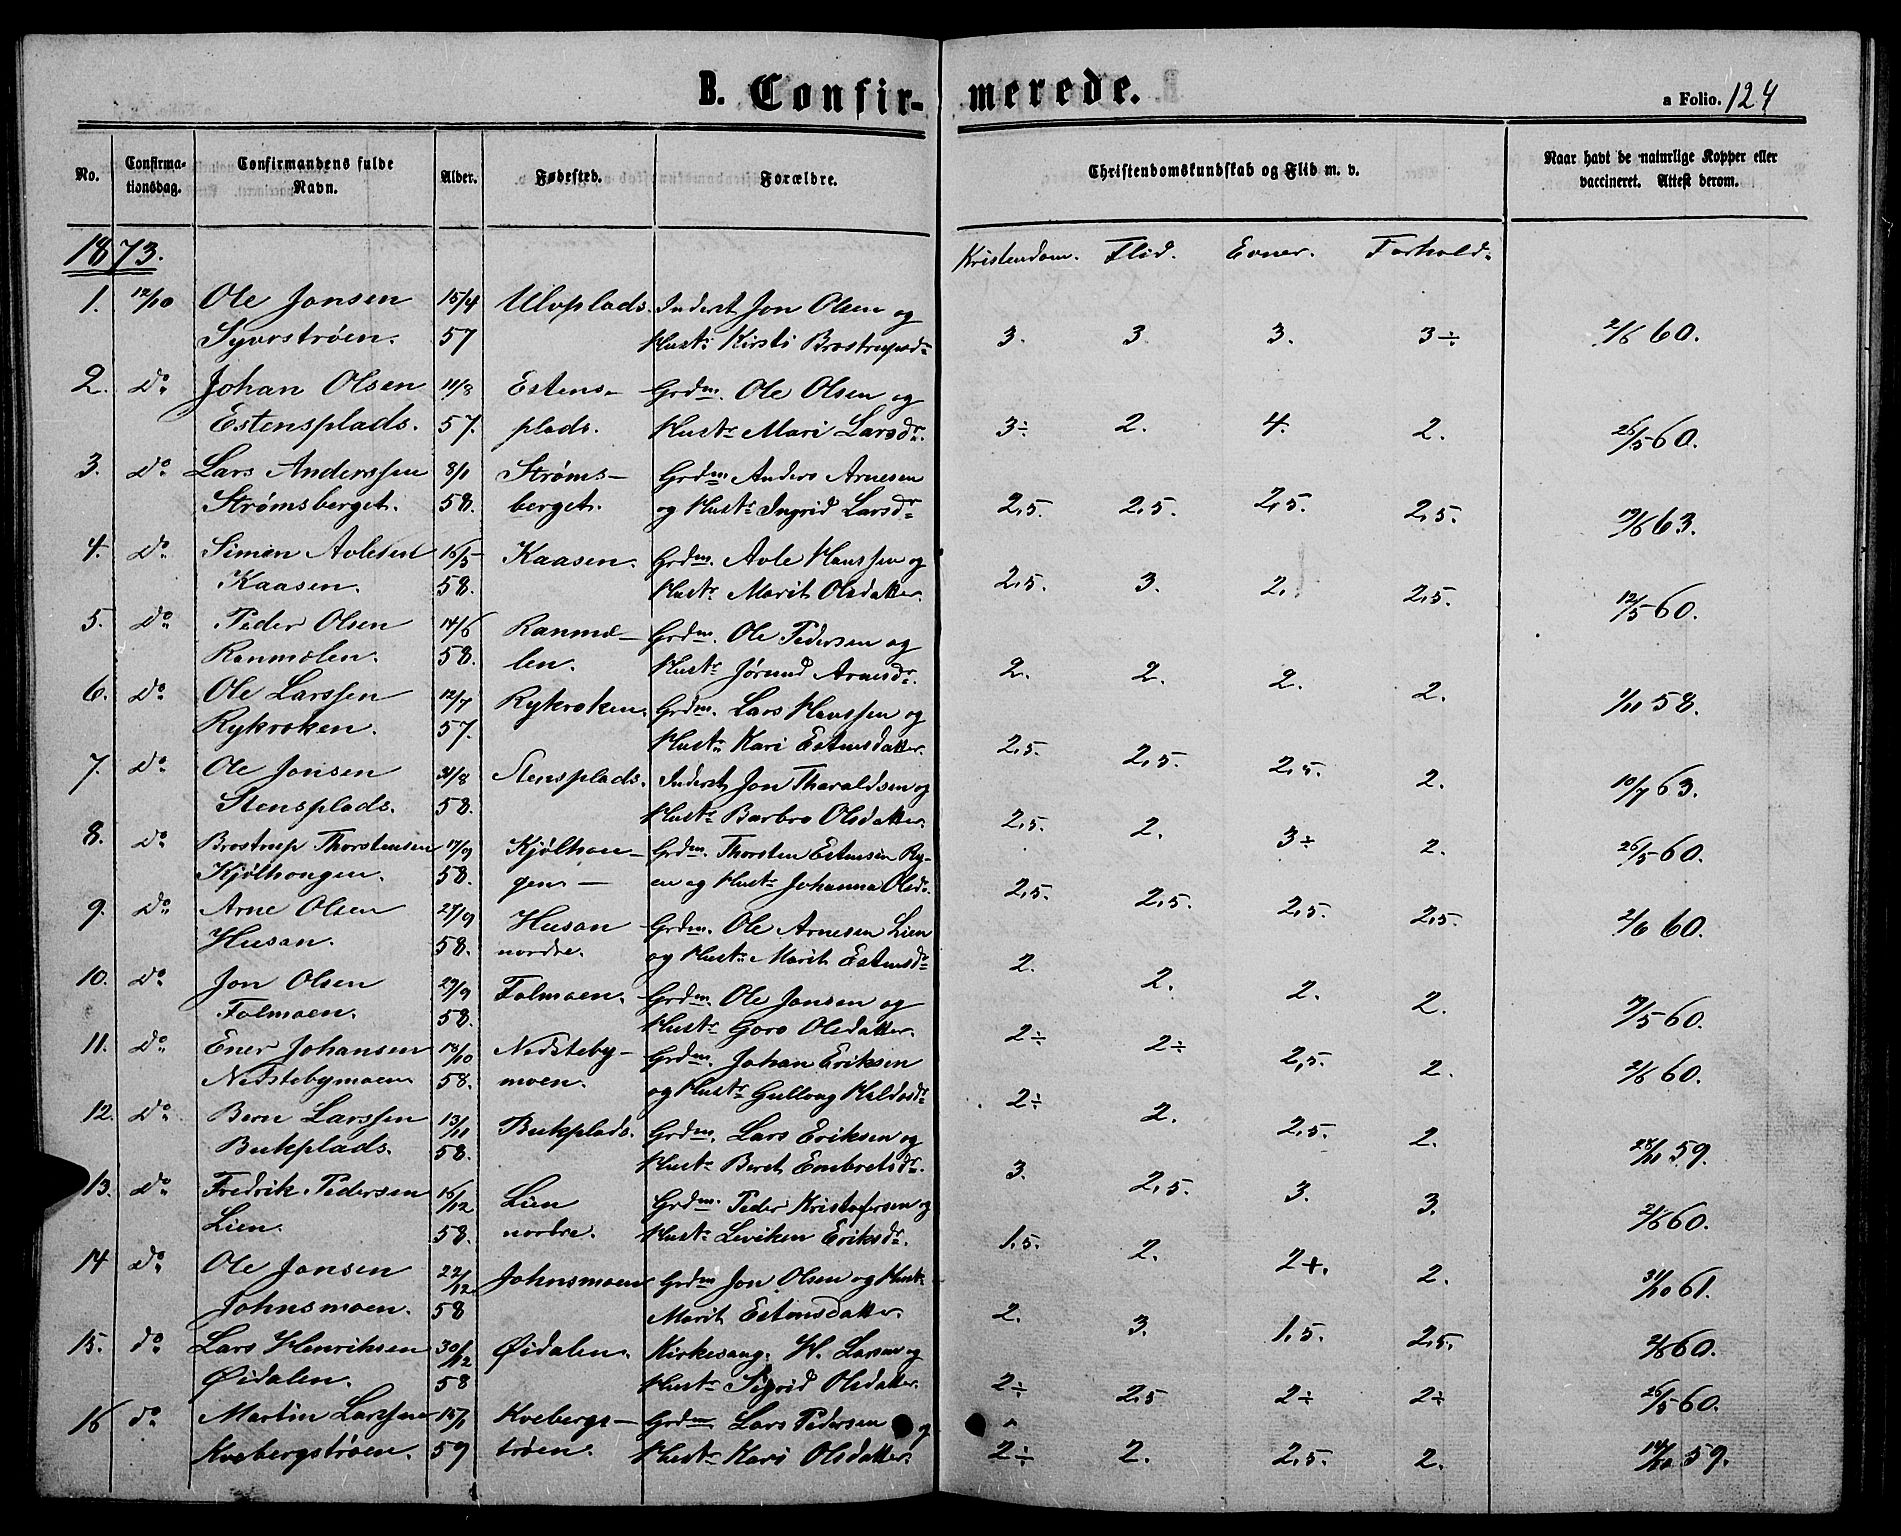 B. Confir-
merede.
a Folio. 124
No.
Confirma-
tionsdag.
Confirmandens fulde
Navn.
Alder.
Fødested.
Forældre.
Christendomskundskab og Flid m. v.
Naar havt de naturlige Kopper eller
vaccineret. Attest derom.
1873.
Kristendom. Flid. Evner. Forhold.
1. 12/10 Ole Jonsen 15/4 Ulvplads. Inderst Jon Olsen og
57 Hust: Kirsti Brostrupsdr
3. 3. 3. 3÷ 2/6 60.
2. Do Johan Olsen 11/8 Estens- Grdm. Ole Olsen og
Estensplads. 57. plads. Hustr Mari Larsdr.
3÷ 2. 4. 2. 26/5 60.
3. Do Lars Anderssen 8/1 Strøms- Grdm Anders Arnesen
Strømsberget. 58. berget. og Hustr Ingrid Larsdr
2,5. 2,5. 2,5. 2,5. 63.
4. Do Simen Avlesen 16/5 Kaasen. Grdm. Avle Hanssen og
Kaasen. 58. Hustr Marit Olsdatter.
2,5. 3. 2. 2,5. 12/5 60.
5. Do Peder Olsen 14/6 Ranmo- Grdm. Ole Pedersen og
Ranmolen. 58. len. Hustr Jørund Arnesdr.
2. 2. 2. 2. 1/11 58.
6. Do Ole Larssen 12/7 Rykroken. Grdm. Lars Hanssen og
Rykroken. 57. Hustr Kari Estensdatter.
2,5. 2,5. 2,5. 2. 10/7 63.
7. Do Ole Jonsen 31/8 Stensplads. Inderst Jon Tharaldsen og
Stensplads. 58. Hustr Barbro Olsdatter.
2,5. 2. 3÷ 2. 26/5 60.
8. Do Brostrup Thorstensen 17/9 Kjølhon- Grdm. Thorsten Estensen Ry-
Kjølhongen. 58. gen. en og Hustr Johanna Olsdr.
2,5. 2,5. 2,5. 2,5. 2/6 60.
9. Do Arne Olsen 27/9 Husan Grdm. Ole Arnesen Lien
Husan. 58. nordre. og Hustr Marit Estensdr
2. 2. 2. 2. 60.
10. Do Jon Olsen 29/9 Folmoen. Grdm. Ole Jonsen og
Folmoen. 58. Hustr Goro Olsdatter.
2÷ 2÷ 2,5. 2. 2/6 60.
11. Do Ener Johansen 18/10 Nedsteby- Grdm. Johan Eriksen
Nedstebymoen 58. moen. og Hustr Gullaug Haldosdr
2÷ 2. 2,5. 2. 28/11 59.
12. Do Bern Larssen 13/11 Bukplads. Grdm. Lars Eriksen og
Bukplads. 58. Hustr Beret Embretsdr.
3. 2,5. 3. 3. 2/6 60.
13. Do Fredrik Pedersen 16/12 Lien Grdm. Peder Kristofersen og
Lien. 58. nordre. Hustr Leviken Eriksdr.
1,5. 2. 2+. 2. 31/10 61.
14 Do Ole Jonsen 22/12 Johnsmoen Grdm Jon Olsen og Hustr
Johnsmoen. 58 Marit Estensdatter.
2. 3. 1,5. 2,5. 2/6 60.
15. do Lars Henriksen 30/12 Øidalen. Kirkesang. H. Larsen og
Øidalen. 58 Hustr Sigrid Olsdatter.
2÷ 2,5 2÷ 2÷ 26/5 60.
16 do Martin Larssen 15/1 Kvebergs- Grdm Lars Pedersen og
Kvebergstrøen. 59 trøen. Hustr Kari Olsdatter.
2÷ 2. 2,5. 2. 14/10 59.
Syvstrøen.